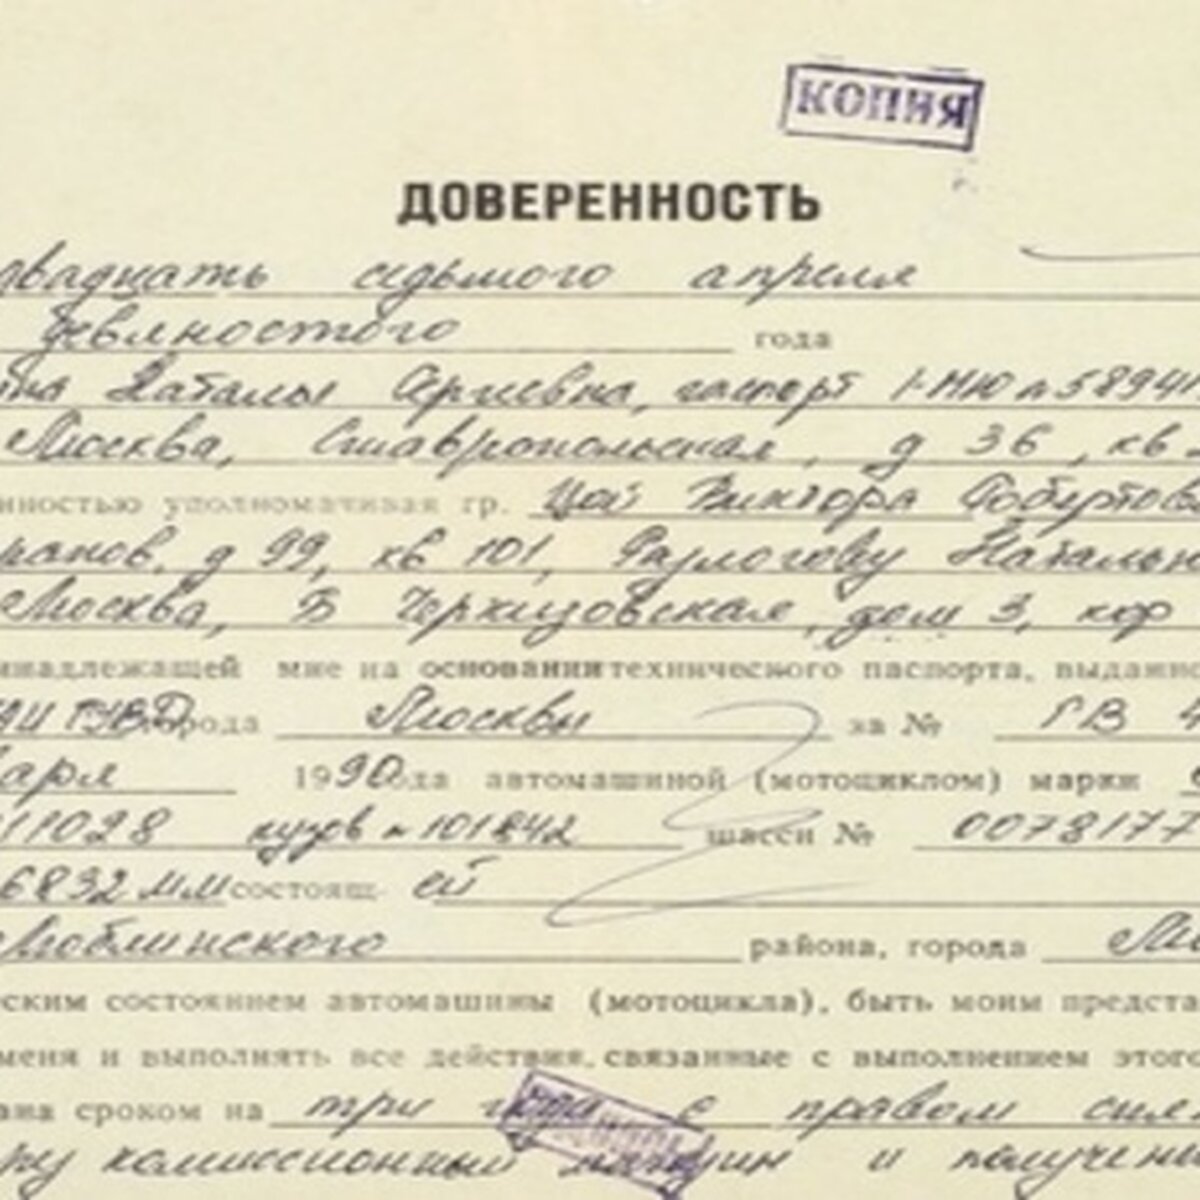 КОПИЯ
ДОВЕРЕННОСТЬ
двадцать седьмого апреля
девяностого года
Наталья Сергиевна, паспорт I-МЮ n 5894
Москва, Ставропольская, д 36, кв
нностью уполномачивая гр. Цой Виктора Робертов
д 99, кв 101, Разлогову Наталью
Москва, Б Черкизовская, дом 3, кор
инадлежащей мне на основании технического паспорта, выданно
АИ ГУВД города Москвы за № ГВ 4
варя 1990 ода автомашиной (мотоциклом) марки
11028 кузов n 101842 шасси № 0078177
6832 ММ состоящ ей
Люблинского района, города Мо
еским состоянием автомашины (мотоцикла), быть моим предста
меня и выполнять все действия, связанные с выполнением этого
ана сроком на три года с правом
комиссионный магазин и получени